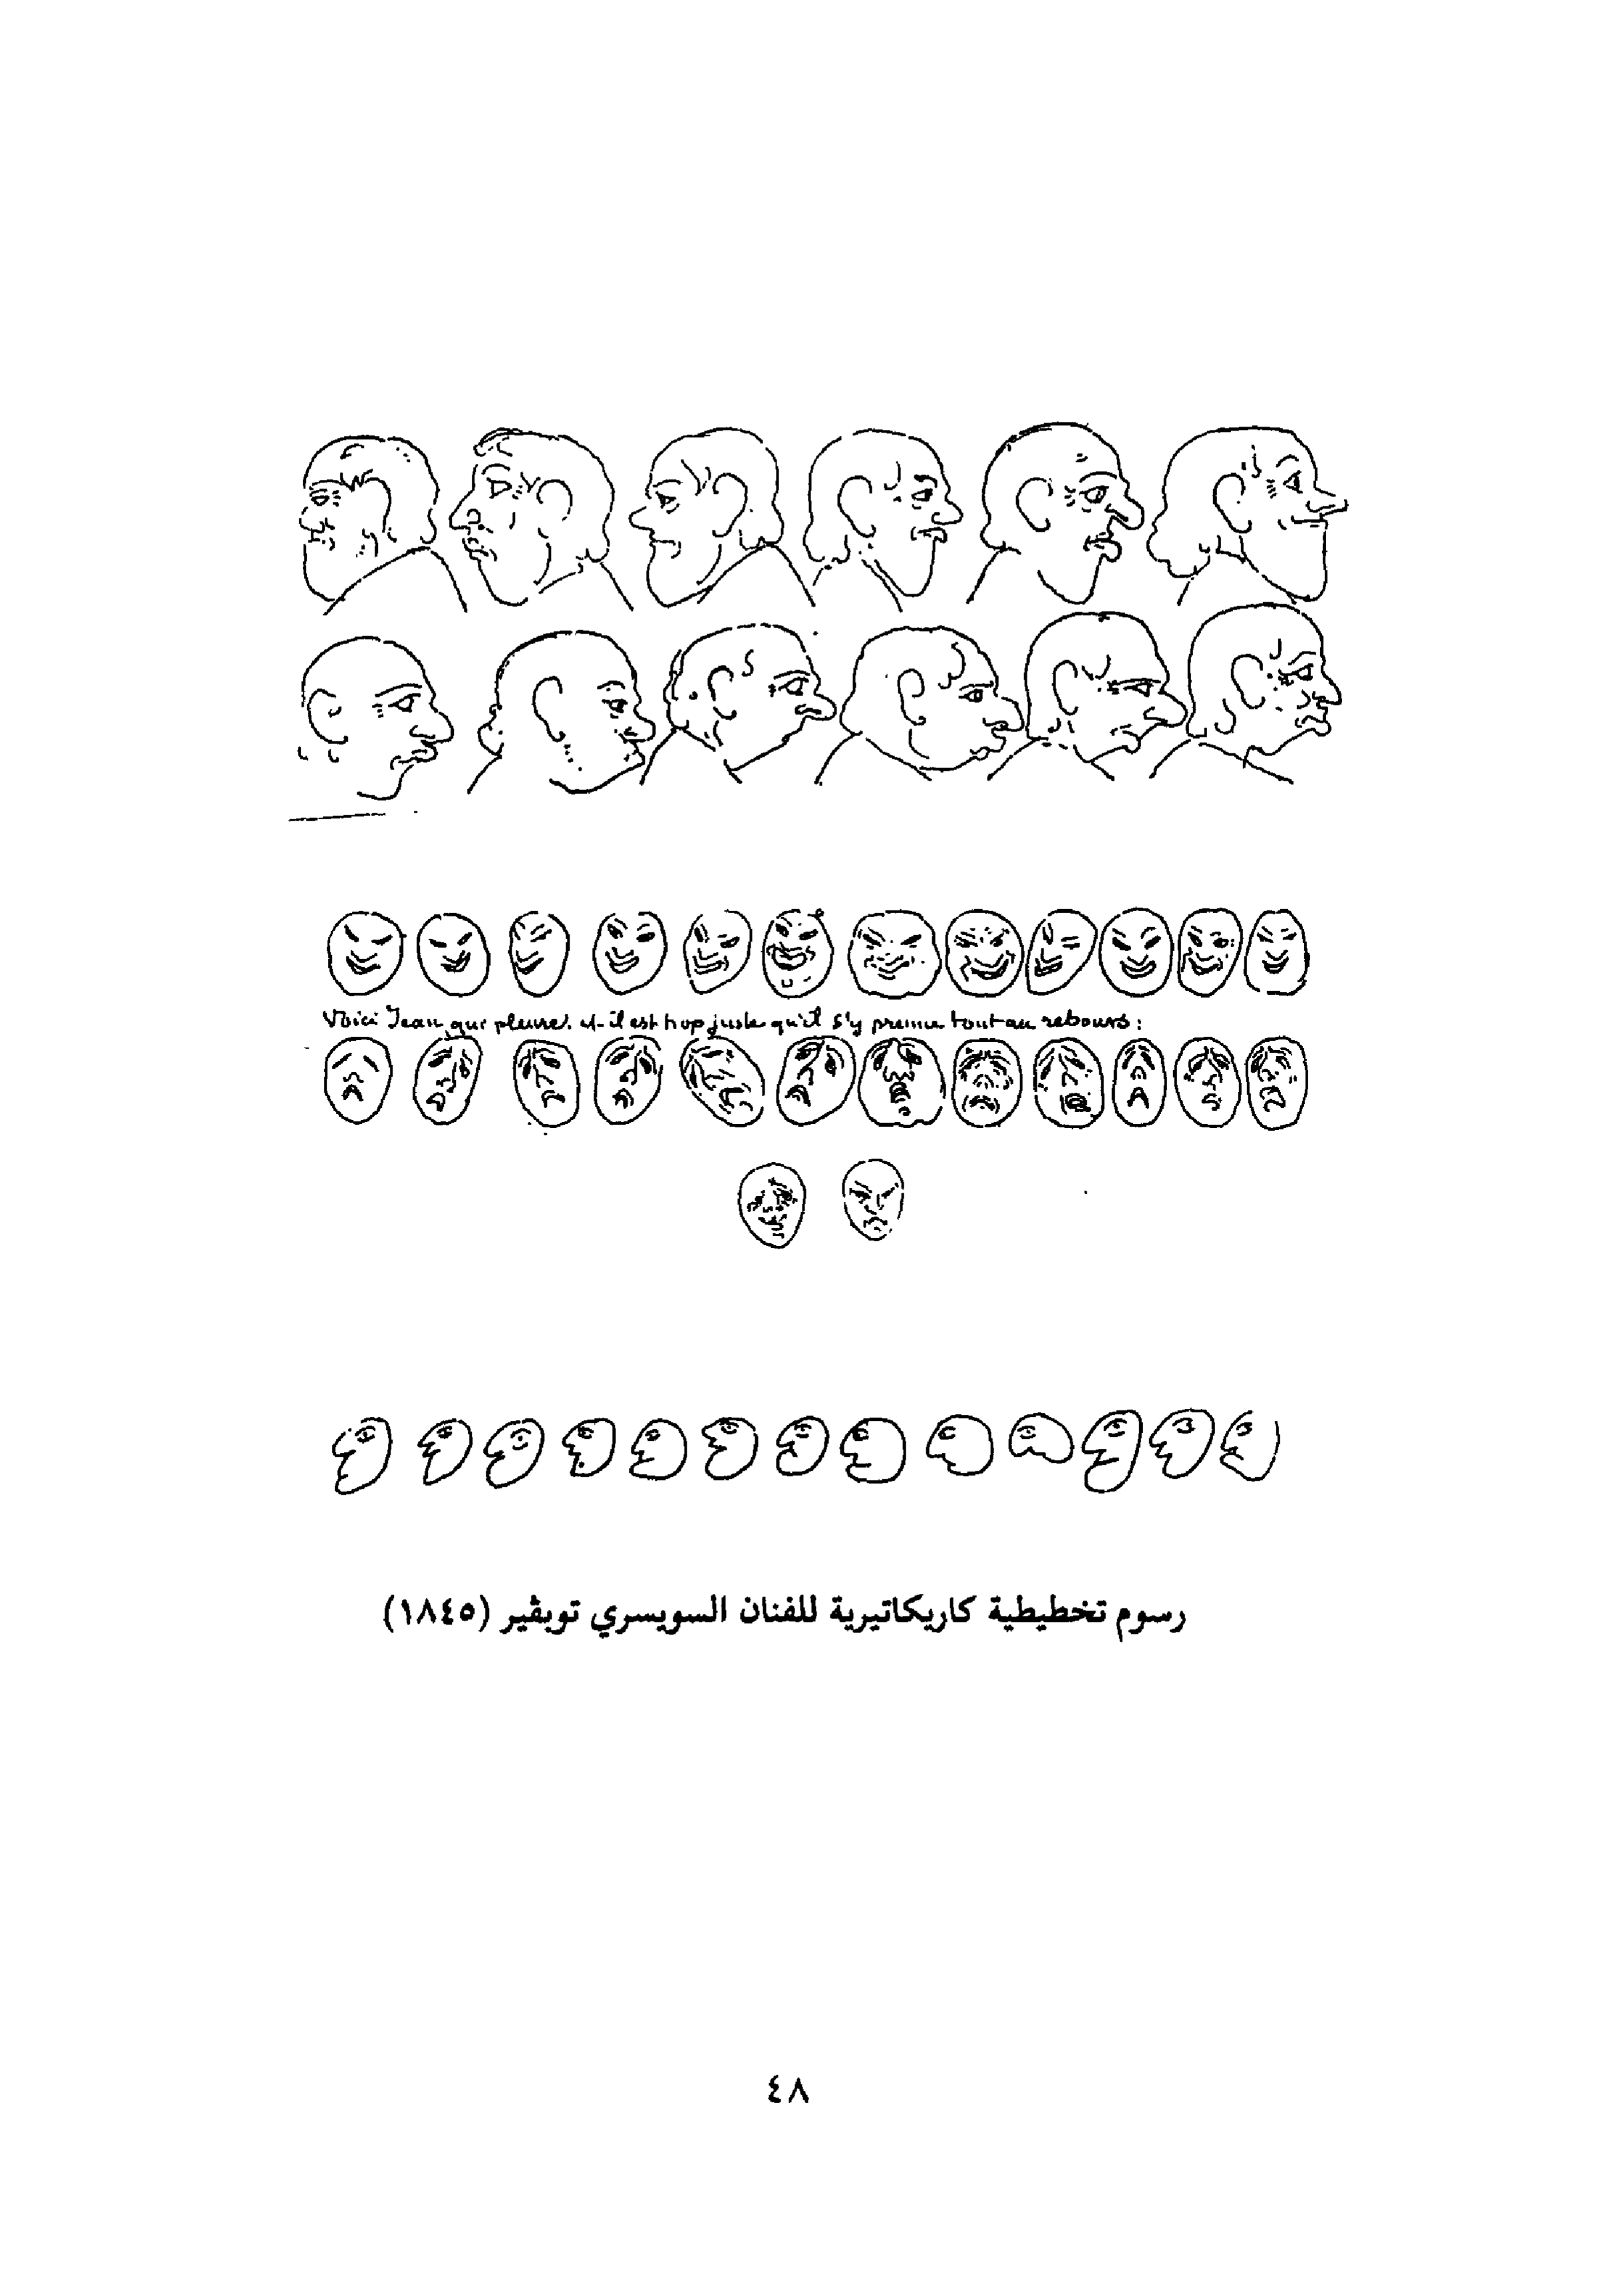 Voici Jean qui pleure, et il est trop juste qu'il s'y prenne tout au rebours :
رسوم تخطيطية كاريكاتيرية للفنان السويسري توپڤير (١٨٤٥)
٤٨